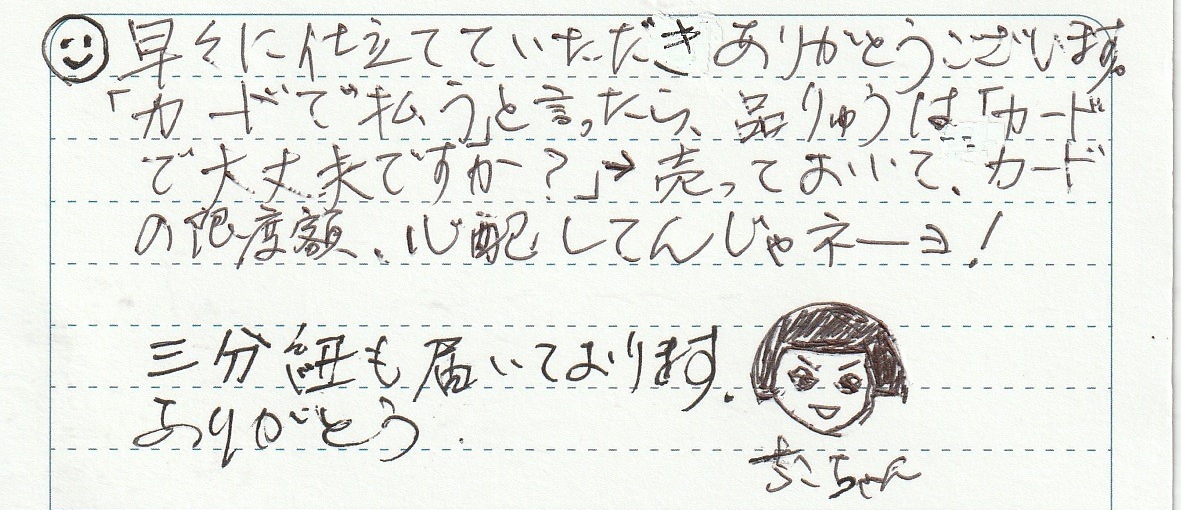 早々に仕立てていただきありがとうございます。
「カードで払う」と言ったら、品りゅうは「カード
で大丈夫ですか?」→売っておいて、カード
の限度額、心配してんじゃネーヨ！
三分紐も届いております。
ありがとう．
ちこちゃん